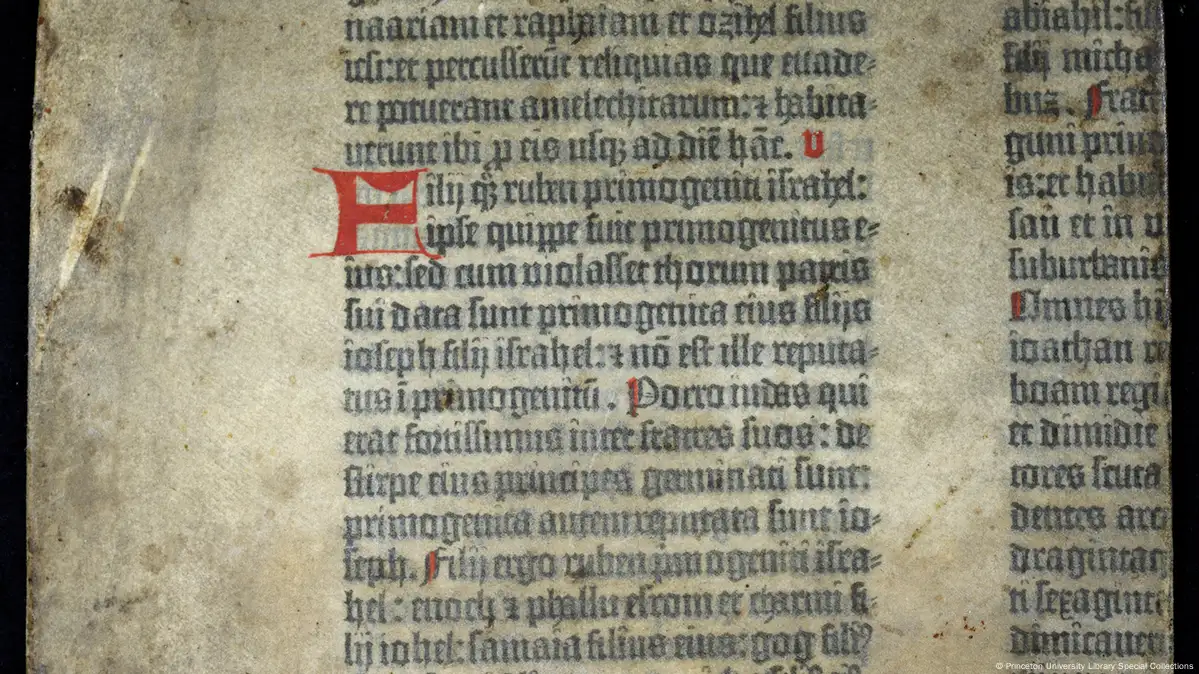 naariam et raphaiam et ozihel filius
iesi: et percusserūt reliquias que euade⸗
re potuerant amelechitarum: ⁊ habita⸗
uerunt ibi ꝓ eis usqꝫ ad diē hāc. v
Filij qꝫ ruben primogeniti israhel:
ipse quippe fuit primogenitus e⸗
ius: sed cum violasset thorum patris
sui data sunt primogenita eius filijs
ioseph filij israhel: ⁊ nō est ille reputa⸗
tus ī primogenitū. Porro iudas qui
erat fortissimus inter fratres suos: de
stirpe eius principes germinati sunt:
primogenita autem reputata sunt io⸗
seph. Filij ergo ruben pmogeniti isra⸗
hel: enoch ⁊ phallu esrom et charmi fi⸗
lij iohel: samaia filius eius: gog fili⁹
abiahil: fil
filij micha
buz. Frat
guni prin
is: et habi
san et in
suburbanis
Omnes hi
ioathan
boam regi
et dimidie
tores scuta
dentes arc
draginta
ti sexaginta
dimicauer
© Princeton University Library Special Collections